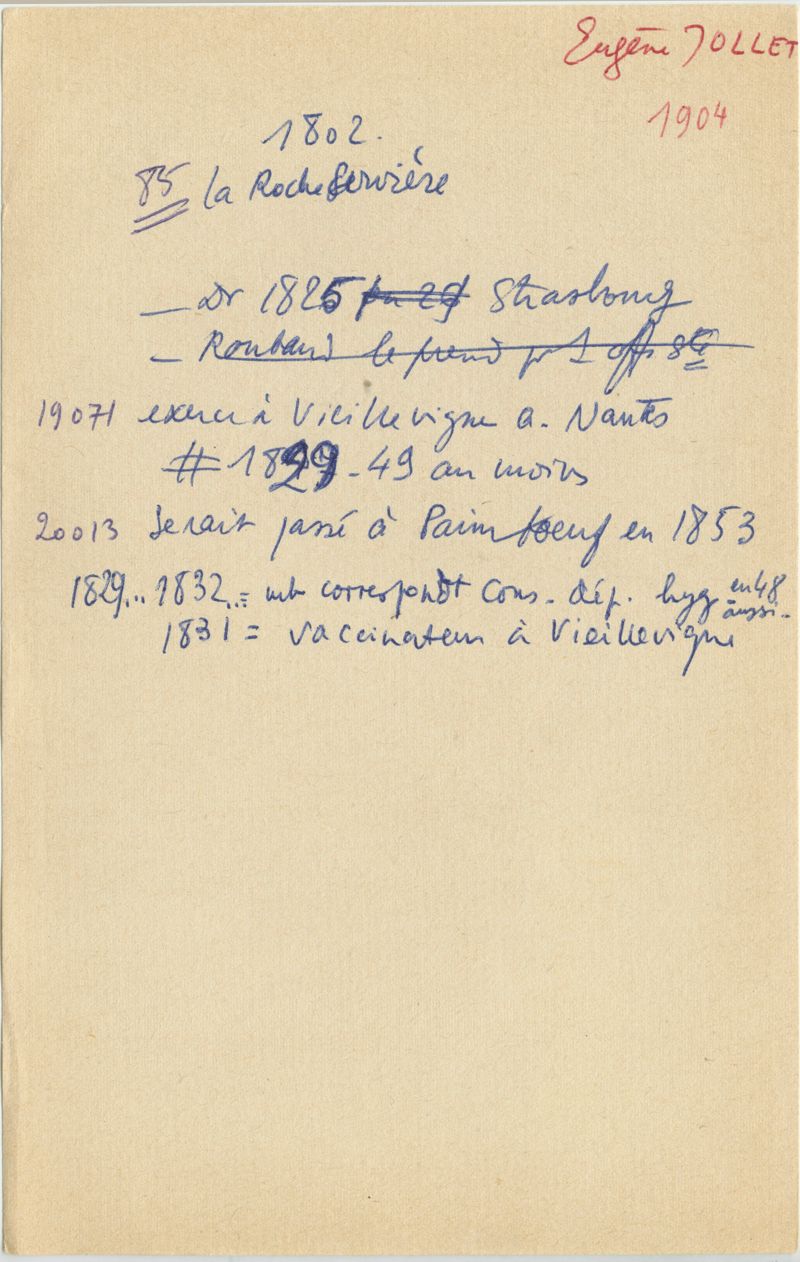 Eugène JOLLET
1904
1802.
85 la RocheServière
— Dr 1825 ou 29 Strasbourg
— Roubaud le prend pr 1 off Sté
19071 exerce à Vieillevigne a. Nantes
# 1829 - 49 au moins
20013 Serait passé à Paimboeuf en 1853
1829... 1832... = mb correspondt Cons. dép. hyg en 48 aussi.
1831 = vaccinateur à Vieillevigne